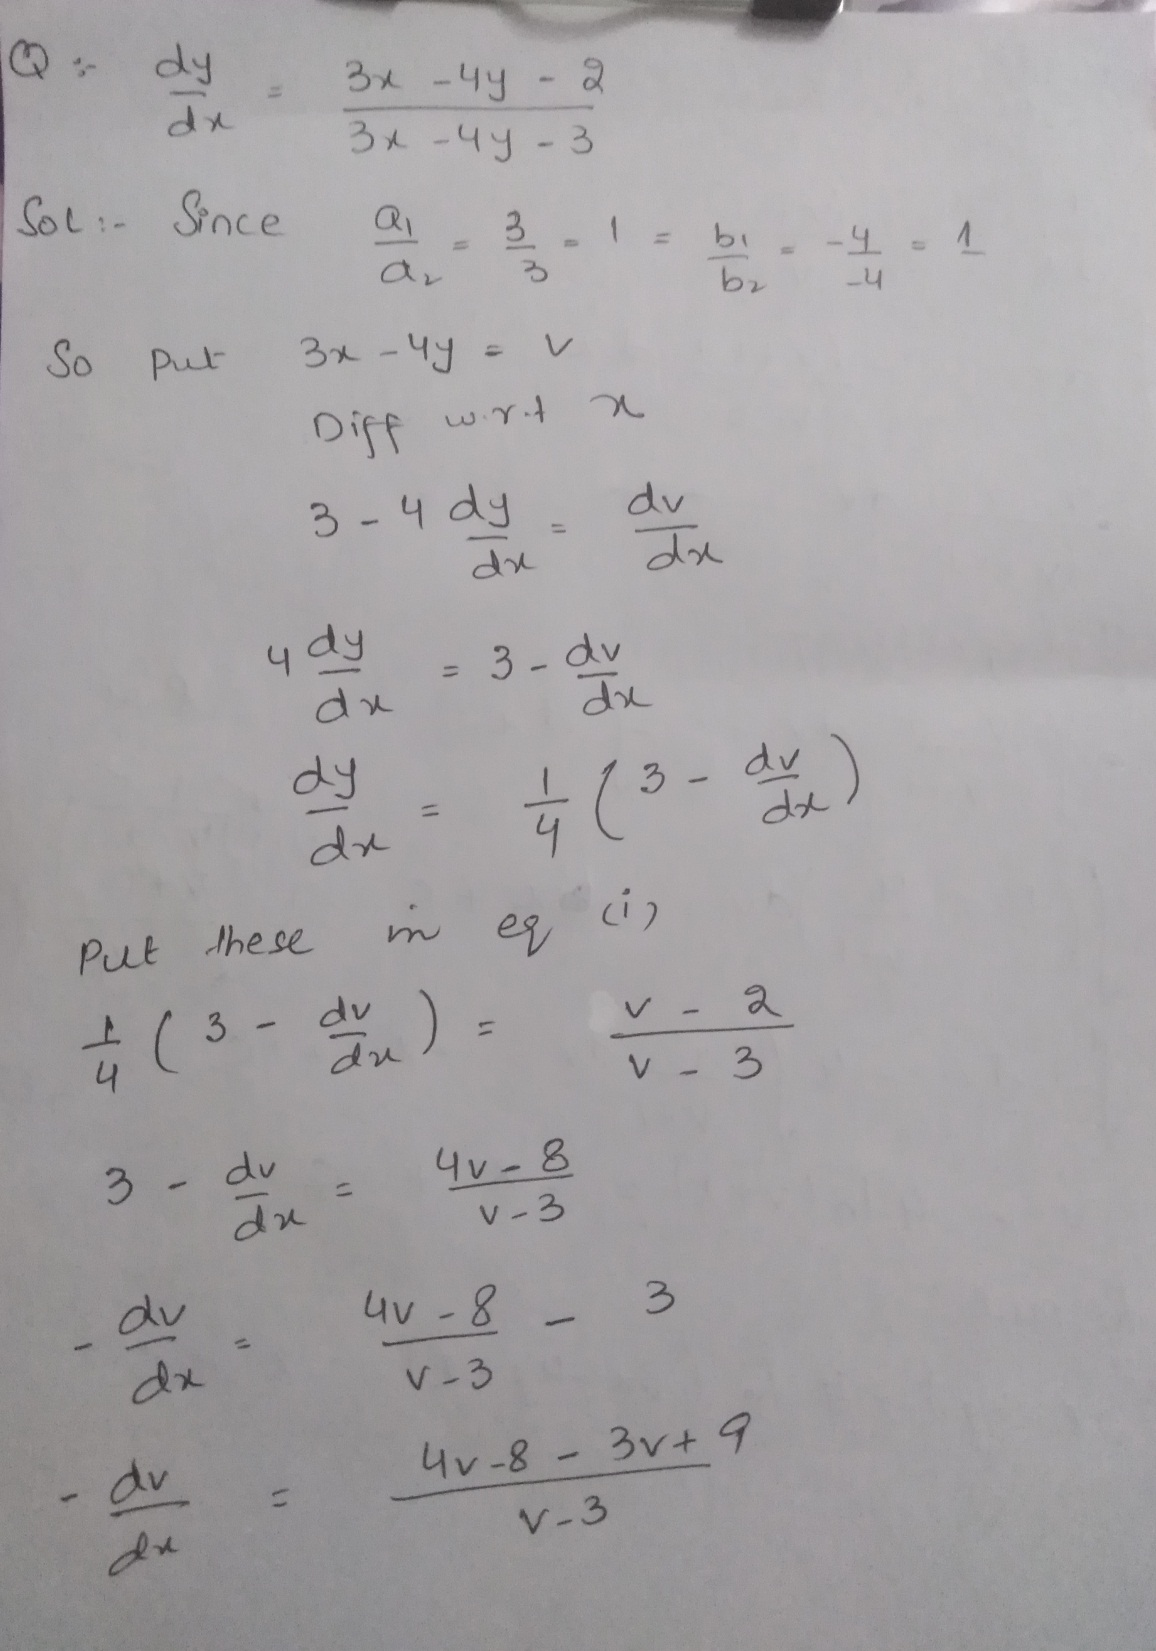 Q :- dy/dx = (3x - 4y - 2)/(3x - 4y - 3)
Sol :- Since a₁/a₂ = 3/3 = 1 = b₁/b₂ = -4/-4 = 1
So put 3x - 4y = v
Diff w.r.t x
3 - 4 dy/dx = dv/dx
4 dy/dx = 3 - dv/dx
dy/dx = 1/4 (3 - dv/dx)
Put these in eq (i)
1/4 (3 - dv/dx) = (v - 2)/(v - 3)
3 - dv/dx = (4v - 8)/(v - 3)
- dv/dx = (4v - 8)/(v - 3) - 3
- dv/dx = (4v - 8 - 3v + 9)/(v - 3)